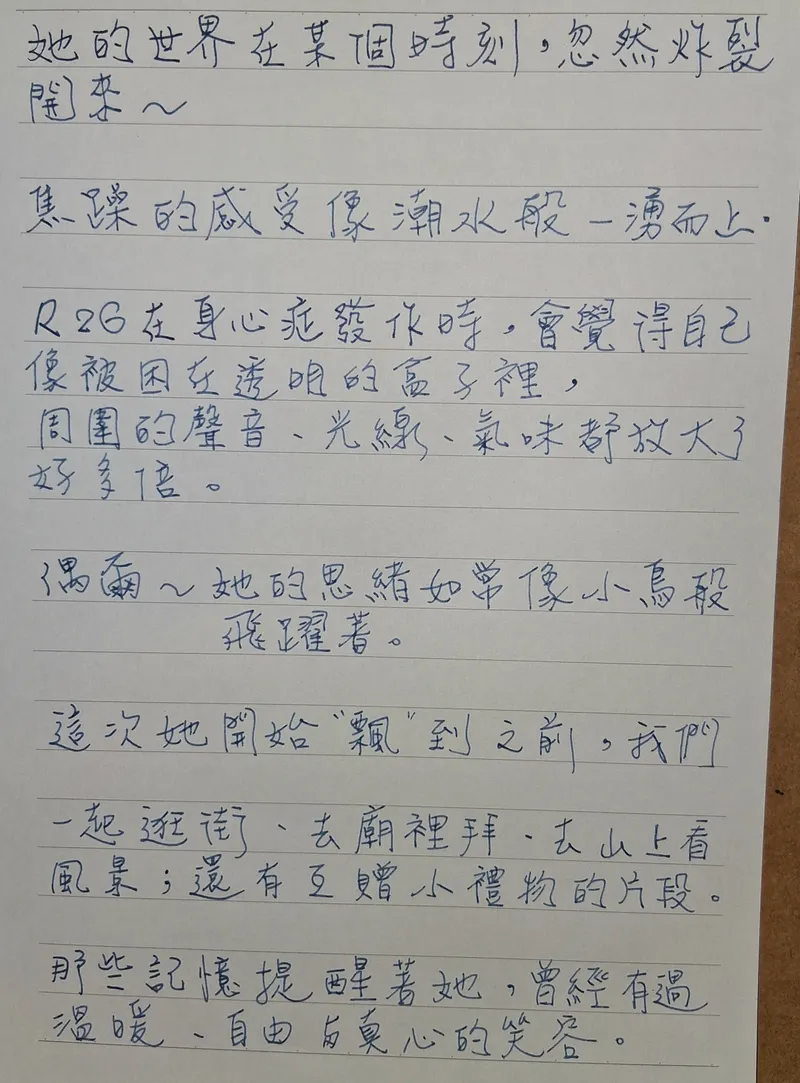 她的世界在某個時刻，忽然炸裂
開來～
焦躁的感受像潮水般一湧而上.
R2G在身心症發作時，會覺得自己
像被困在透明的盒子裡，
周圍的聲音、光線、氣味都放大了
好多倍。
偶爾～她的思緒如常像小鳥般
飛躍著。
這次她開始"飄"到之前，我們
一起逛街、去廟裡拜、去山上看
風景；還有互贈小禮物的片段。
那些記憶提醒著她，曾經有過
溫暖、自由与真心的笑容。